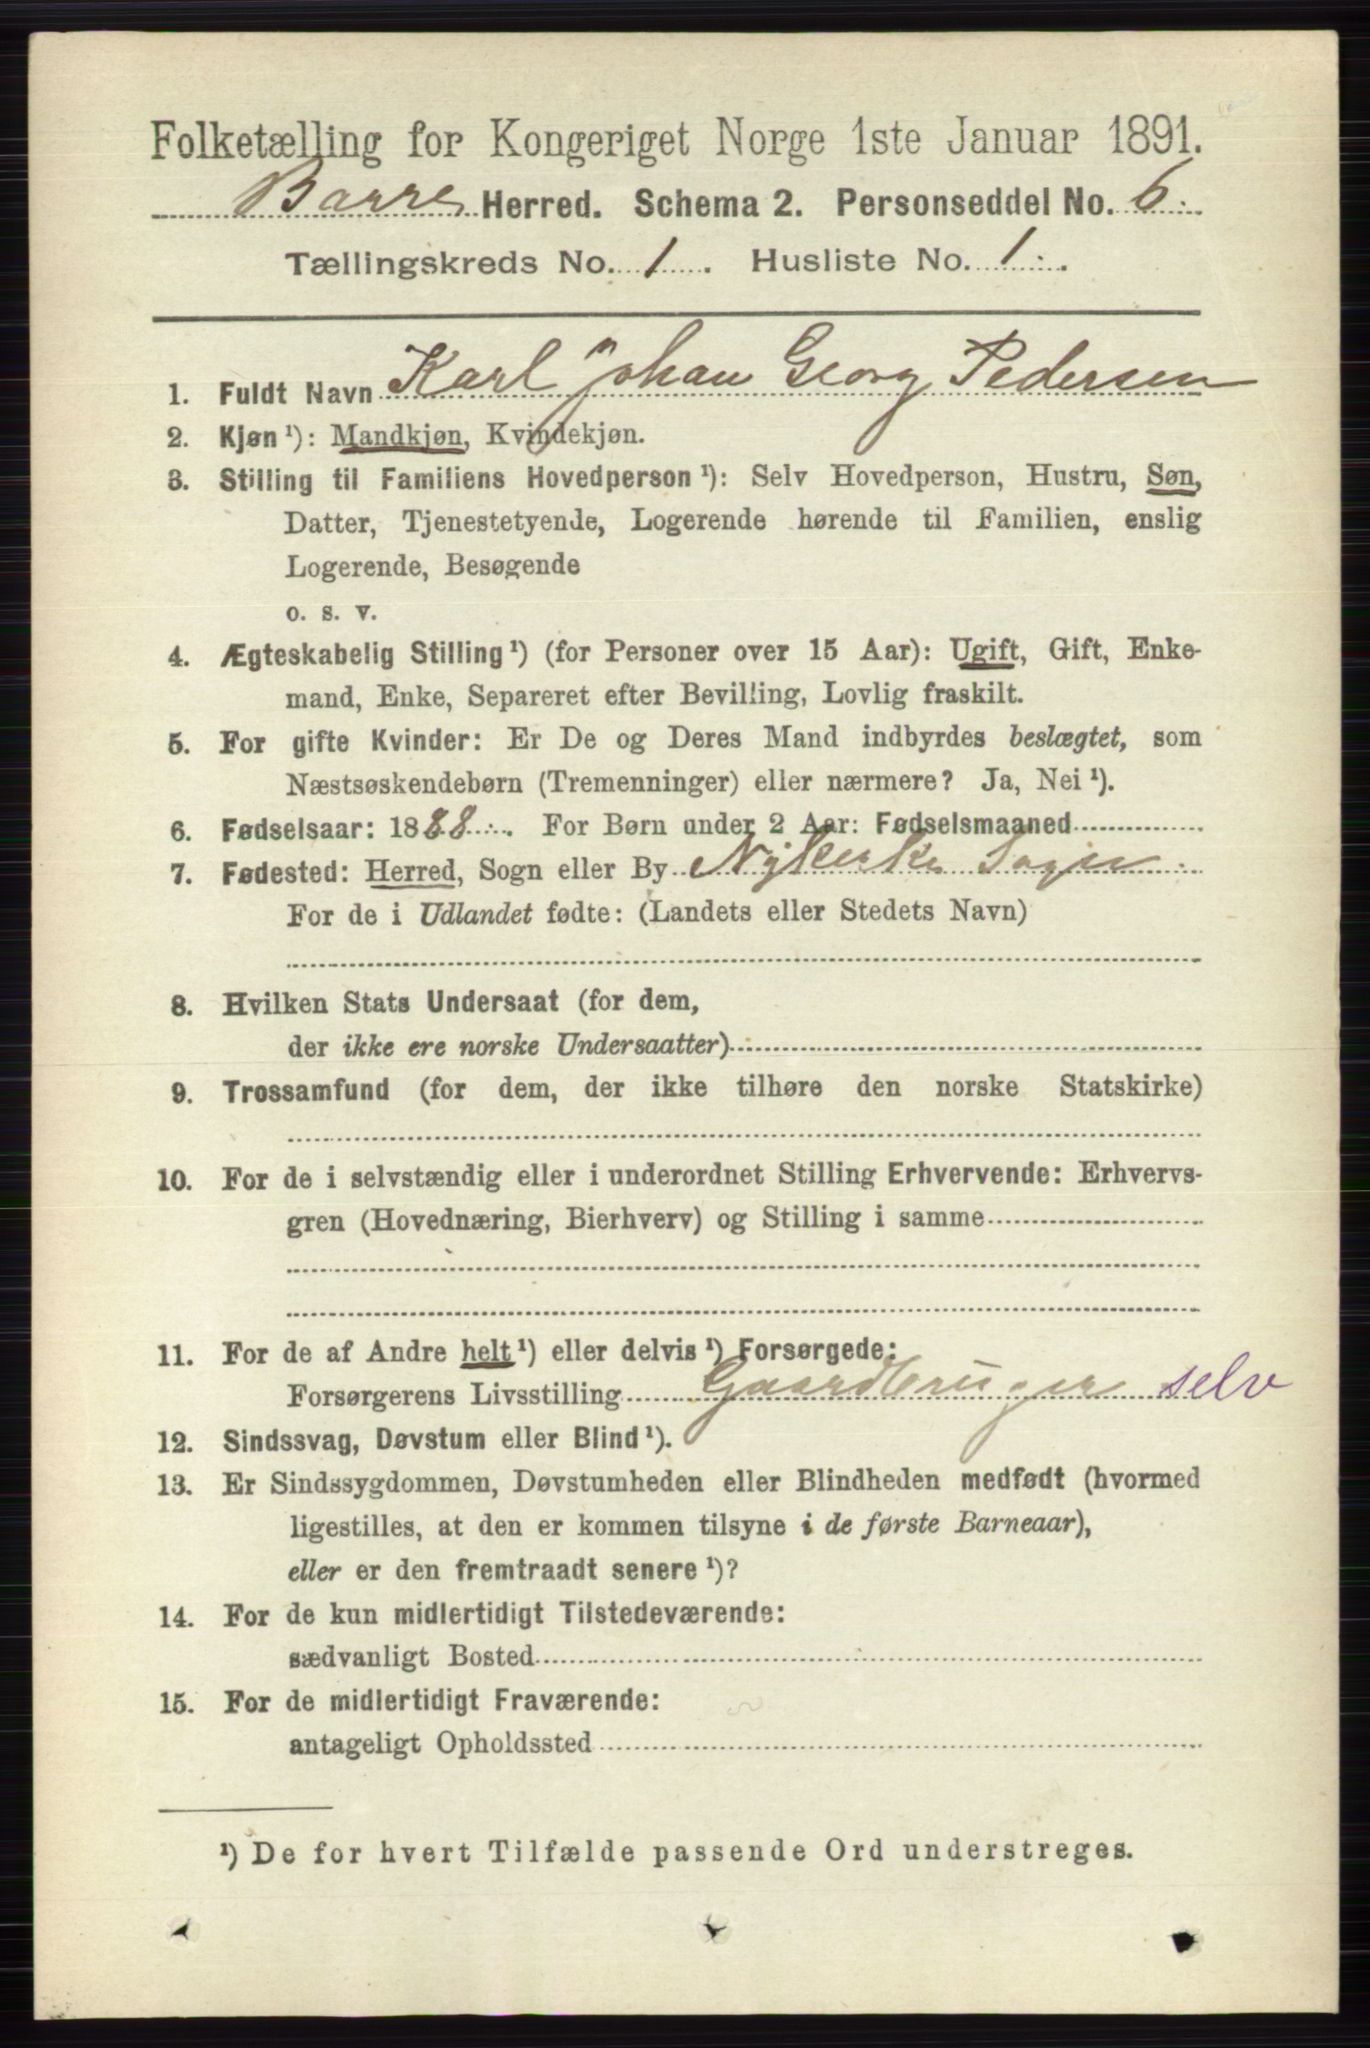 Folketælling for Kongeriget Norge 1ste Januar 1891.
Borre Herred. Schema 2. Personseddel No. 6.
Tællingskreds No. 1. Husliste No. 1.
1. Fuldt Navn Karl Johan Georg Pedersen
2. Kjøn ¹): Mandkjøn, Kvindekjøn.
3. Stilling til Familiens Hovedperson ¹): Selv Hovedperson, Hustru, Søn,
Datter, Tjenestetyende, Logerende hørende til Familien, enslig
Logerende, Besøgende
o. s. v.
4. Ægteskabelig Stilling ¹) (for Personer over 15 Aar): Ugift, Gift, Enke-
mand, Enke, Separeret efter Bevilling, Lovlig fraskilt.
5. For gifte Kvinder: Er De og Deres Mand indbyrdes beslægtet, som
Næstsøskendebørn (Tremenninger) eller nærmere? Ja, Nei ¹).
6. Fødselsaar: 1888. For Børn under 2 Aar: Fødselsmaaned
7. Fødested: Herred, Sogn eller By Nykirke Sogn
For de i Udlandet fødte: (Landets eller Stedets Navn)
8. Hvilken Stats Undersaat (for dem,
der ikke ere norske Undersaatter)
9. Trossamfund (for dem, der ikke tilhøre den norske Statskirke)
10. For de i selvstændig eller i underordnet Stilling Erhvervende: Erhvervs-
gren (Hovednæring, Bierhverv) og Stilling i samme
11. For de af Andre helt ¹) eller delvis ¹) Forsørgede:
Forsørgerens Livsstilling Gaardbruger selv
12. Sindssvag, Døvstum eller Blind ¹).
13. Er Sindssygdommen, Døvstumheden eller Blindheden medfødt (hvormed
ligestilles, at den er kommen tilsyne i de første Barneaar),
eller er den fremtraadt senere ¹)?
14. For de kun midlertidigt Tilstedeværende:
sædvanligt Bosted
15. For de midlertidigt Fraværende:
antageligt Opholdssted
¹) De for hvert Tilfælde passende Ord understreges.